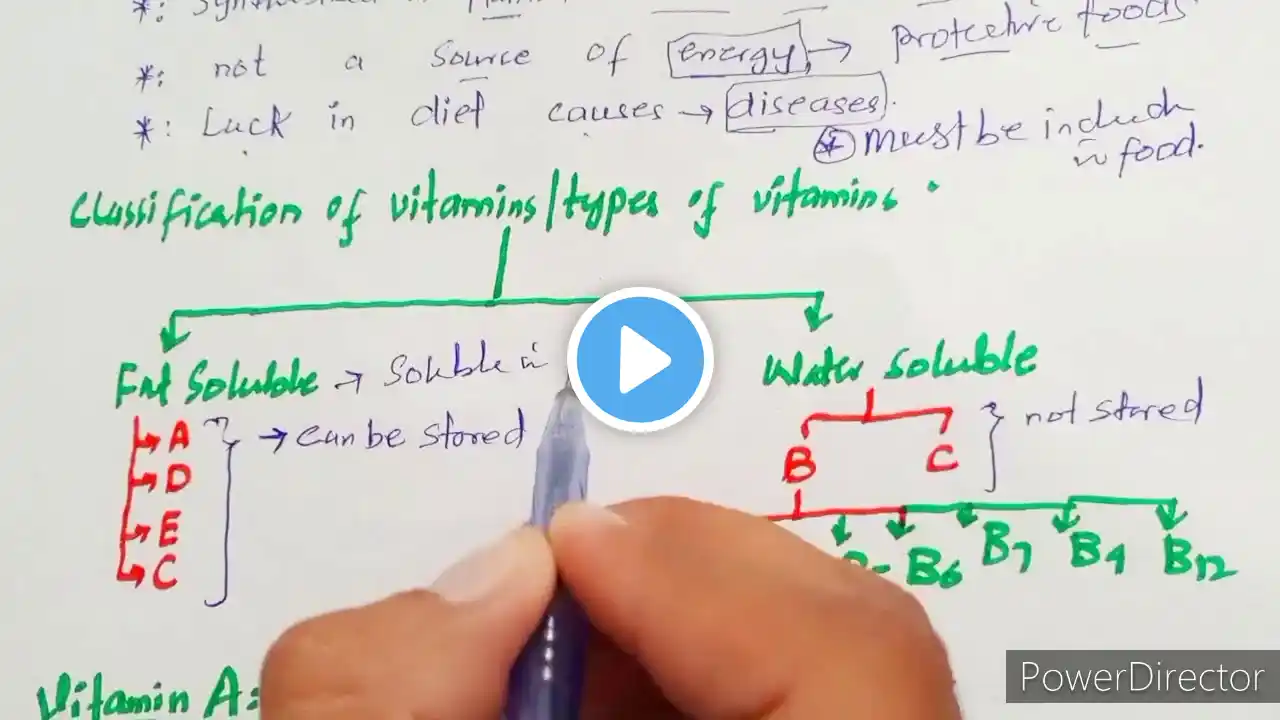 *: Synthesized
*: not a source of energy → protective foods
*: Luck in diet causes → diseases.
* Must be includ
in food.
Classification of vitamins/types of vitamins.
Fat Soluble → Soluble in
Water Soluble
A } → can be stored
D
E
C
B C } not stored
B6 B7 B9 B12
Vitamin A:
PowerDirector